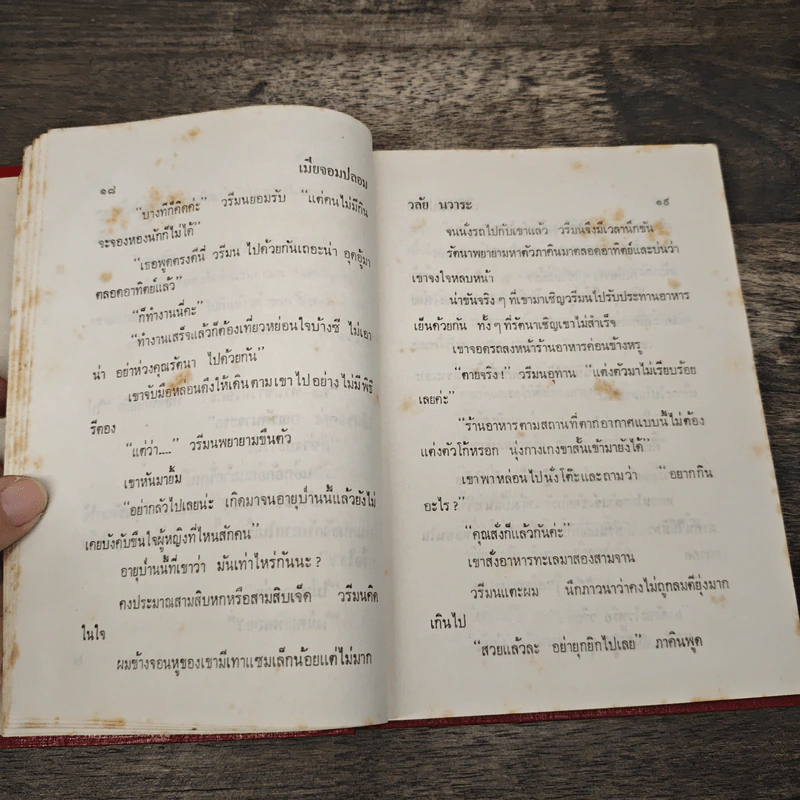 ๑๘
เมียจอมปลอม
“บางทีก็คิดค่ะ” วรีมนยอมรับ “แต่คนไม่มีกิน
จะจองหองนักก็ไม่ได้”
“เธอพูดตรงดีนี่ วรีมน ไปด้วยกันเถอะน่า อุดอู้มา
ตลอดอาทิตย์แล้ว”
“ก็ทำงานนี่คะ”
“ทำงานเสร็จแล้วก็ต้องเที่ยวหย่อนใจบ้างซี ไม่เอา
น่า อย่าห่วงคุณรัตนา ไปด้วยกัน”
เขาจับมือหล่อนดึงให้เดินตามเขาไปอย่างไม่มีพิธี
รีตอง
“แต่ว่า....” วรีมนพยายามขืนตัว
เขาหันมายิ้ม
“อย่ากลัวไปเลยน่ะ เกิดมาจนอายุป่านนี้แล้วยังไม่
เคยบังคับขืนใจผู้หญิงที่ไหนสักคน”
อายุป่านนี้ที่เขาว่า มันเท่าไหร่กันนะ ?
คงประมาณสามสิบหกหรือสามสิบเจ็ด วรีมนคิด
ในใจ
ผมข้างจอนหูของเขามีเทาแซมเล็กน้อยแต่ไม่มาก
วลัย นวาระ
๑๙
จนนั่งรถไปกับเขาแล้ว วรีมนจึงมีเวลานึกขัน
รัตนาพยายามหาตัวภาคินมาตลอดอาทิตย์และบ่นว่า
เขาจงใจหลบหน้า
น่าขันจริง ๆ ที่เขามาเชิญวรีมนไปรับประทานอาหาร
เย็นด้วยกัน ทั้ง ๆ ที่รัตนาเชิญเขาไม่สำเร็จ
เขาจอดรถลงหน้าร้านอาหารค่อนข้างหรู
“ตายจริง !” วรีมนอุทาน “แต่งตัวมาไม่เรียบร้อย
เลยค่ะ”
“ร้านอาหารตามสถานที่ตากอากาศแบบนี้ไม่ต้อง
แต่งตัวโก้หรอก นุ่งกางเกงขาสั้นเข้ามายังได้”
เขาพาหล่อนไปนั่งโต๊ะและถามว่า “อยากกิน
อะไร ?”
“คุณสั่งก็แล้วกันค่ะ”
เขาสั่งอาหารทะเลมาสองสามจาน
วรีมนแตะผม นึกภาวนาว่าคงไม่ถูกลมตียุ่งมาก
เกินไป
“สวยแล้วละ อย่ายุกยิกไปเลย” ภาคินพูด